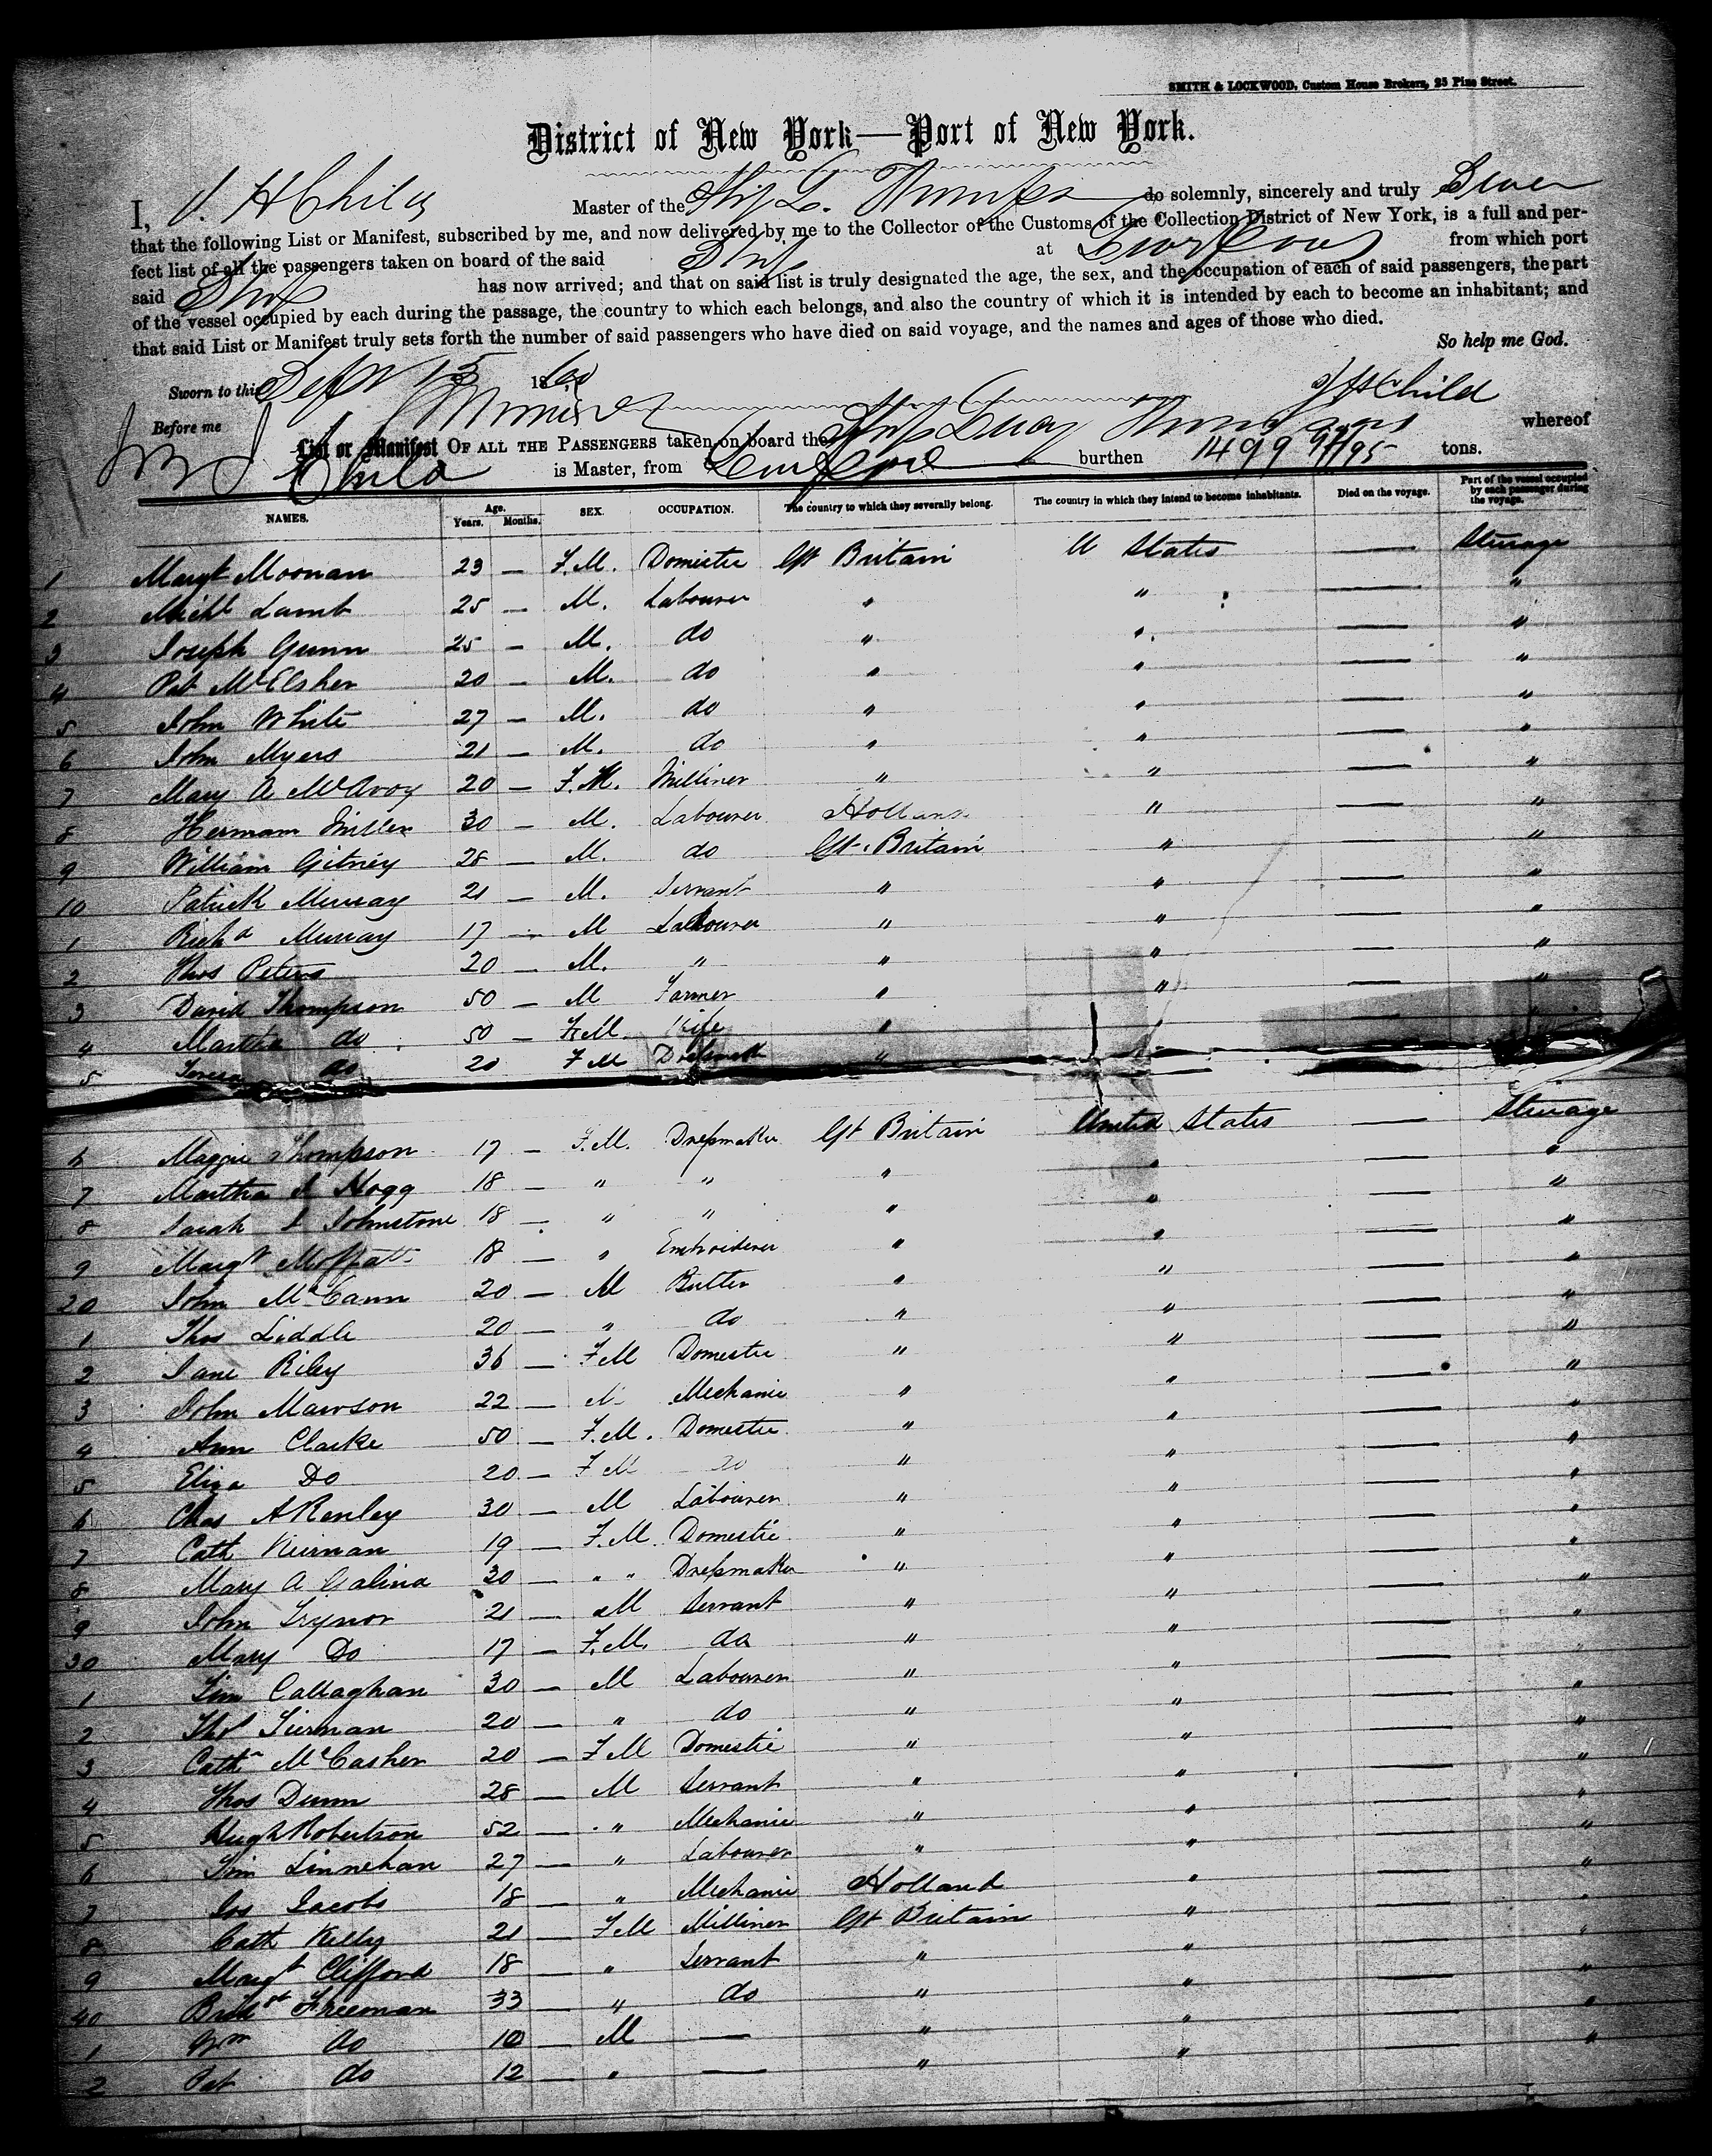 SMITH & LOCKWOOD, Custom House Brokers, 25 Pine Street.
District of New York—Port of New York.
I, J. H Child Master of the Ship L. do solemnly, sincerely and truly Swear
that the following List or Manifest, subscribed by me, and now delivered by me to the Collector of the Customs of the Collection District of New York, is a full and per-
fect list of all the passengers taken on board of the said Ship at Liverpool from which port
said Ship has now arrived; and that on said list is truly designated the age, the sex, and the occupation of each of said passengers, the part
of the vessel occupied by each during the passage, the country to which each belongs, and also the country of which it is intended by each to become an inhabitant; and
that said List or Manifest truly sets forth the number of said passengers who have died on said voyage, and the names and ages of those who died.
So help me God.
Sworn to this Sept 15 1860
J H Child
Before me
List or Manifest OF ALL THE PASSENGERS taken on board the Ship whereof
Child is Master, from Liverpool burthen 1499 94/95 tons.
NAMES. Age. Years. Months. SEX. OCCUPATION. The country to which they severally belong. The country in which they intend to become inhabitants. Died on the voyage. Part of the vessel occupied by each passenger during the voyage.
1 Margt Moonan 23 — F.M. Domestic Gt Britain U States — Sterage
2 Michl Lamb 25 — M. Labourer " " — "
3 Joseph Gunn 25 — M. do " " — "
4 Pat McElsher 20 — M. do " " — "
5 John White 27 — M. do " " — "
6 John Myers 21 — M. do " " — "
7 Mary A McAvoy 20 — F.M. Milliner " " — "
8 Hermann Miller 30 — M. Labourer Holland " — "
9 William Gitney 28 — M. do Gt. Britain " — "
10 Patrick Murray 21 — M. Servant " " — "
1 Richd Murray 17 — M Labourer " " — "
2 Thos Peters 20 — M. " " " — "
3 David Thompson 50 — M Farmer " " — "
4 Martha do 50 — F.M. Wife "
5 do 20 F M Dressmak "
6 Maggie Thompson 17 — F.M. Dressmaker Gt Britain United States — Sterage
7 Martha J Hogg 18 — " " " " — "
8 Sarah J Johnstone 18 — " " " " — "
9 Margt Moffatt 18 — " Embroiderer " " — "
20 John McCann 20 — M Butler " " — "
1 Thos Liddle 20 — " do " " — "
2 Jane Riley 36 — F M Domestic " " — "
3 John Mawson 22 — M Mechanic " " — "
4 Ann Clarke 50 — F.M. Domestic " " — "
5 Eliza Do 20 — F M do " " — "
6 Chas AKenley 30 — M Labourer " " — "
7 Cath Kiernan 19 — F.M. Domestic " " — "
8 Mary A Galina 30 — " " Dressmaker " " — "
9 John Trynor 21 — M Servant " " — "
30 Mary Do 17 — F.M. do " " — "
1 Tim Callaghan 30 — M Labourer " " — "
2 Thos Tiernan 20 — " do " " — "
3 Cath McCasher 20 — F M Domestic " " — "
4 Thos Dunn 28 — M Servant " " — "
5 Hugh Robertson 52 — " Mechanic " " — "
6 Tim Linnehan 27 — " Labourer " " — "
7 Jos Jacobs 18 — " Mechanic Holland " — "
8 Cath Kelly 21 — F M Milliner Gt Britain " — "
9 Margt Clifford 18 — " Servant " " — "
40 Bridgt Freeman 33 — " do " " — "
1 Wm do 10 — M — " " — "
2 Pat do 12 — " — " " — "